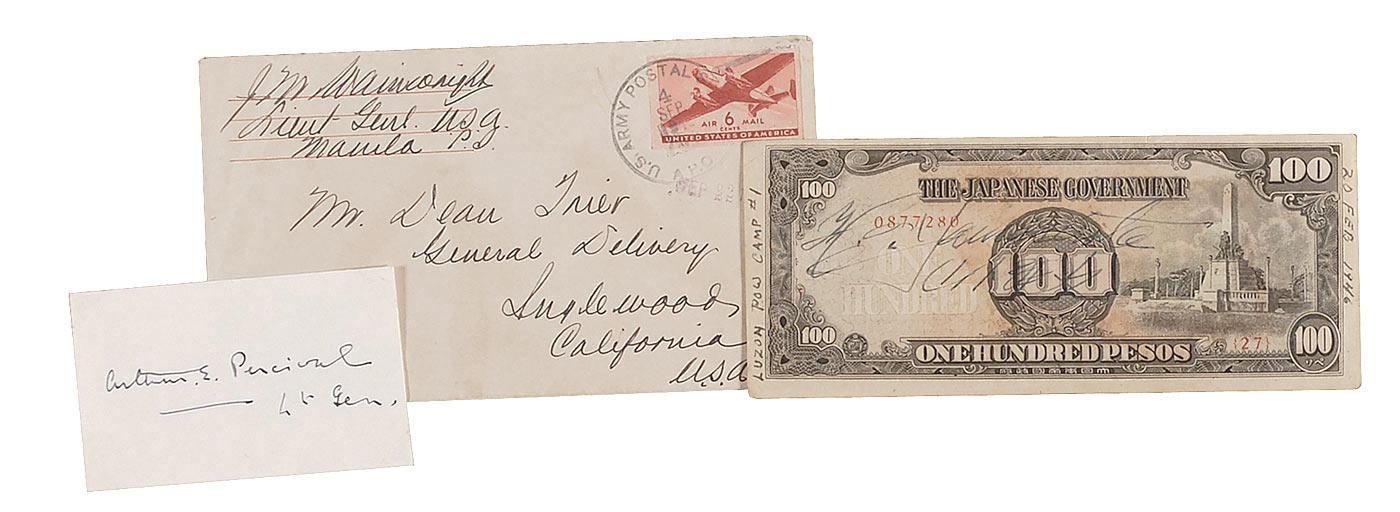 J M Wainwright
Lieut Genl. USA.
Manila P.I.
U.S. ARMY POSTAL
A.P.O.
4
SEP
AIR 6 MAIL
CENTS
UNITED STATES OF AMERICA
SEP
Mr. Dean Trier
General Delivery
Inglewood
California
U.S.A
Arthur. E. Percival
Lt Gen.
LUZON POW CAMP #1
100
100
THE JAPANESE GOVERNMENT
0877280
ONE
HUNDRED
100
100
ONE HUNDRED PESOS
{27}
100
20 FEB 1946